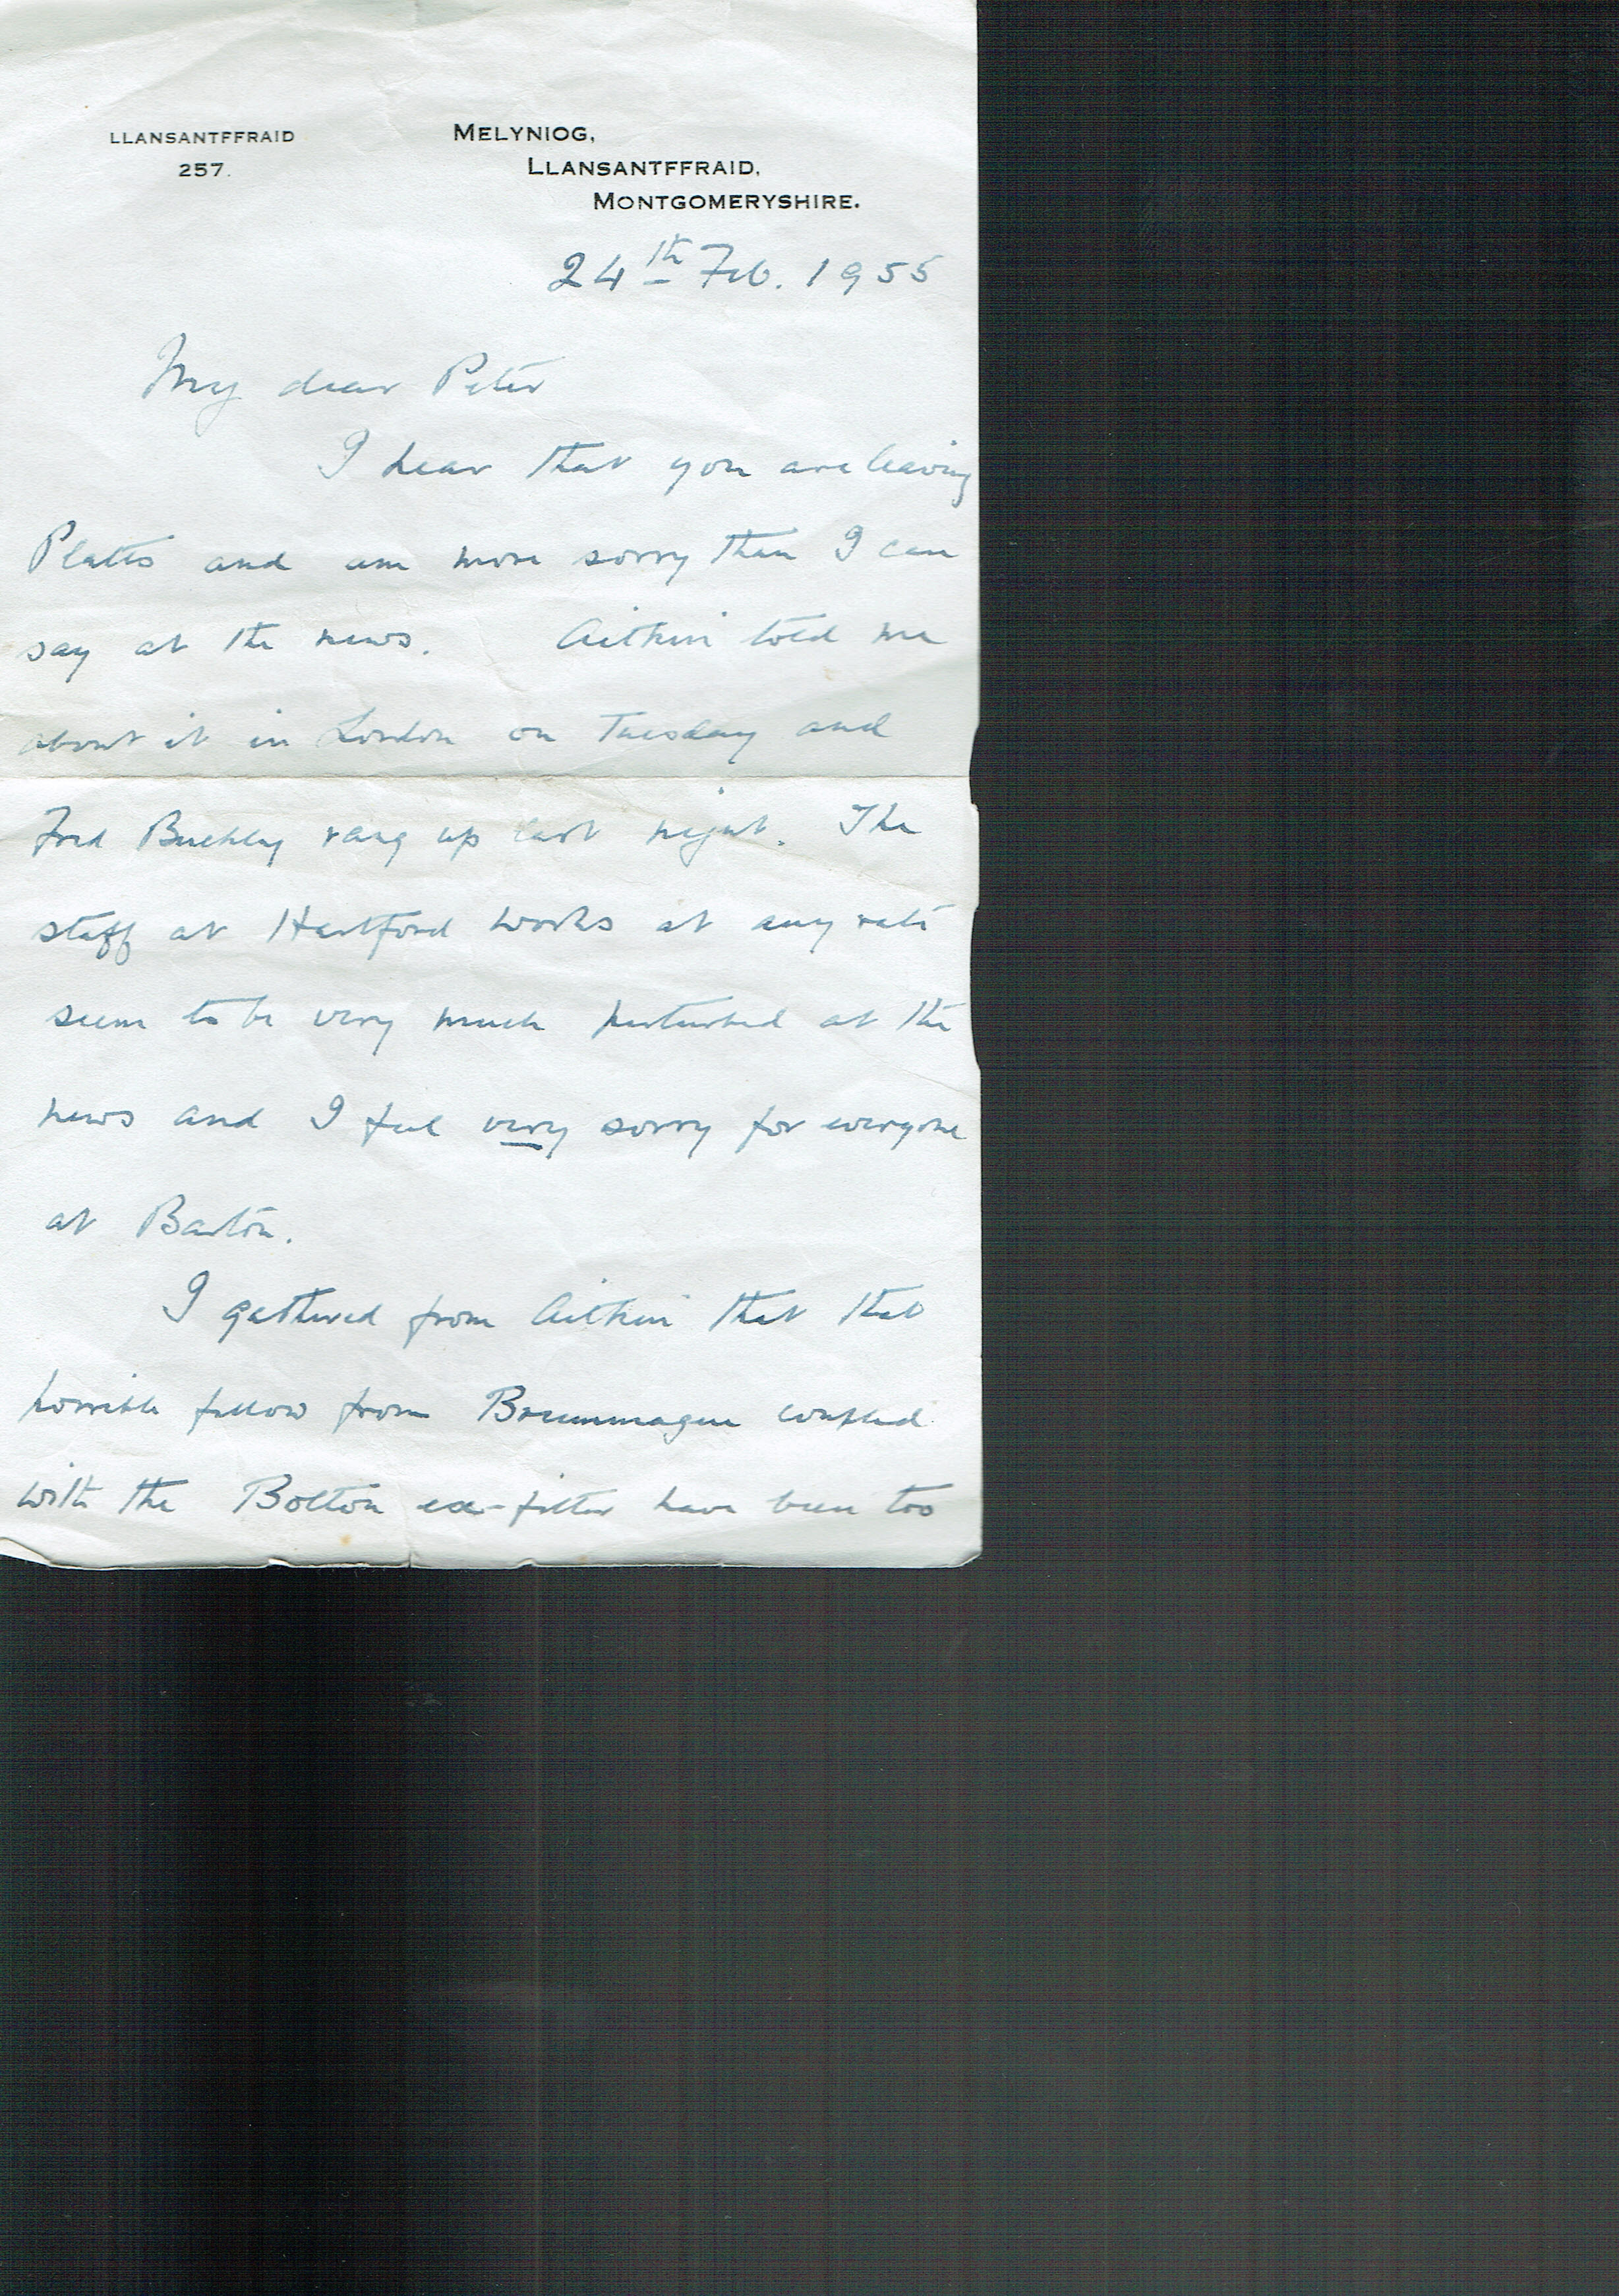 LLANSANTFFRAID
257.
MELYNIOG,
LLANSANTFFRAID,
MONTGOMERYSHIRE.
24th Feb. 1955
My dear Peter
I hear that you are leaving
Platts and am more sorry than I can
say at the news. Aitken told me
about it in London on Tuesday and
Fred Buckley rang up last night. The
staff at Hartford Works at any rate
seem to be very much perturbed at the
news and I feel very sorry for everyone
at Barton.
I gathered from Aitken that that
horrible fellow from Brummagen coupled
with the Bolton ex-fitter have been too